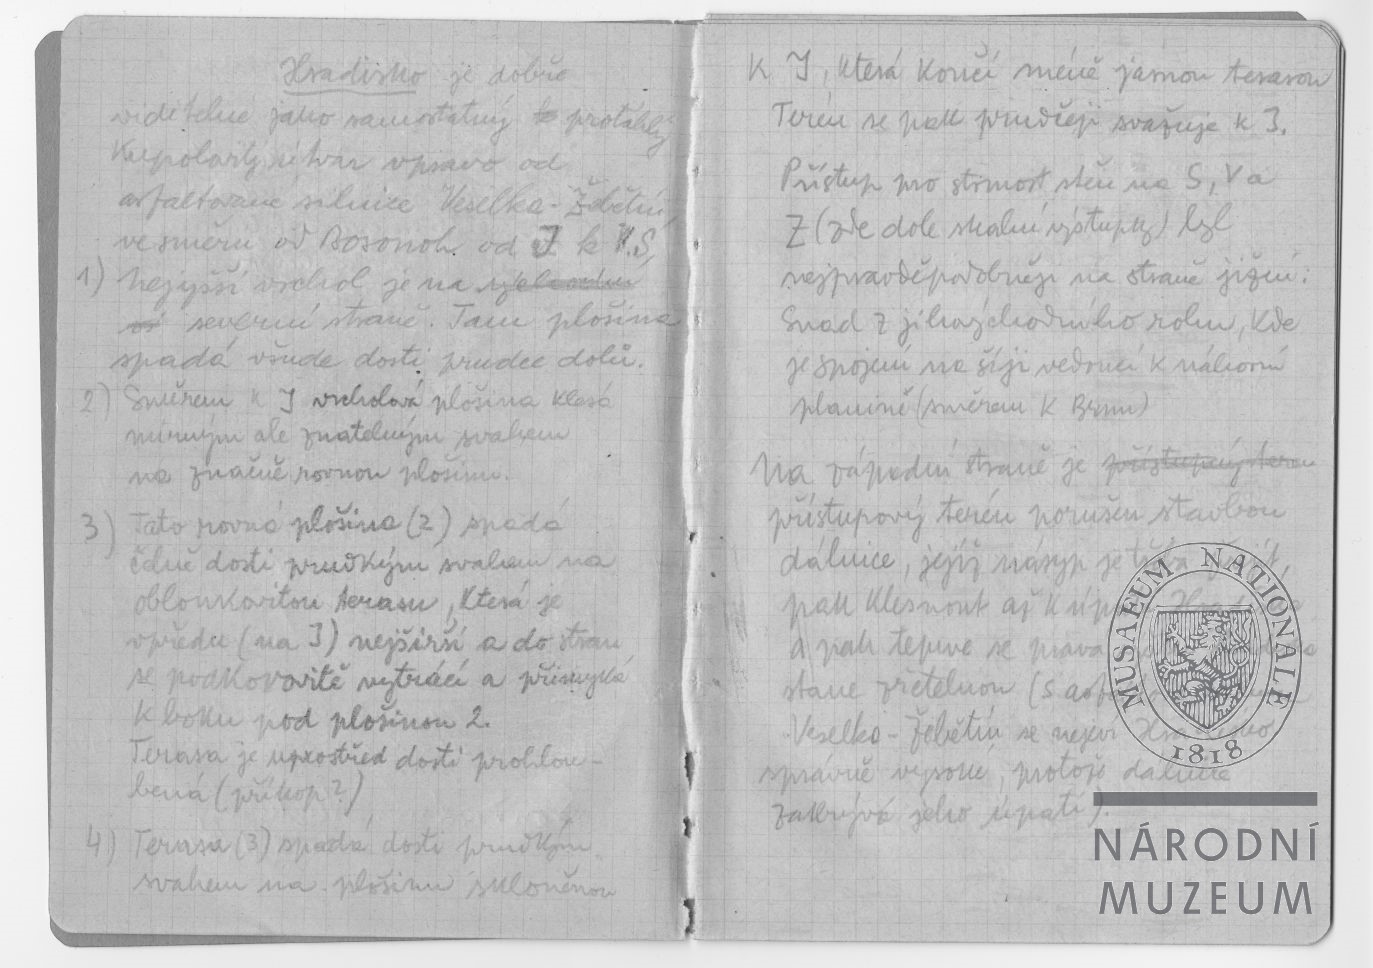 Hradisko je dobře
viditelné jako samostatný protáhlý
kupolovitý útvar vpravo od
asfaltované silnice Veselka - Žebětín,
ve směru od Bosonoh od J k S,
1) Nejvyšší vrchol je na
severní straně. Tam plošina
spadá všude dosti prudce dolů.
2) Směrem k J vrcholová plošina klesá
mírným ale znatelným svahem
na značně rovnou plošinu.
3) Tato rovná plošina (2) spadá
čelně dosti prudkým svahem na
obloukovitou terasu, která je
vpředu (na J) nejširší a do stran
se podkovovitě vytrácí a přimyká
k boku pod plošinou 2.
Terasa je uprostřed dosti prohlou-
bená (příkop?)
4) Terasa (3) spadá dosti prudkým
svahem na plošinu skloněnou
K J, která končí méně jasnou terasou
Terén se pak prudčeji svažuje k J.
Přístup pro strmost stěn na S, V a
Z (zde dole skalní výstupky) byl
nejpravděpodobněji na straně jižní:
Snad z jihovýchodního rohu, kde
je spojení na šíji vedoucí k náhorní
planině (směrem k Brnu)
Na západní straně je přístupný terén
přístupový terén porušen stavbou
dálnice, jejíž násyp je třeba
pak klesnout až k úpatí
a pak teprve se prava
stane zřetelnou (s
Veselka - Žebětín se nejeví Hradisko
správně vysoké, protože dálnice
zakrývá jeho úpatí).
MUSAEUM NATIONALE
1818
NÁRODNÍ
MUZEUM